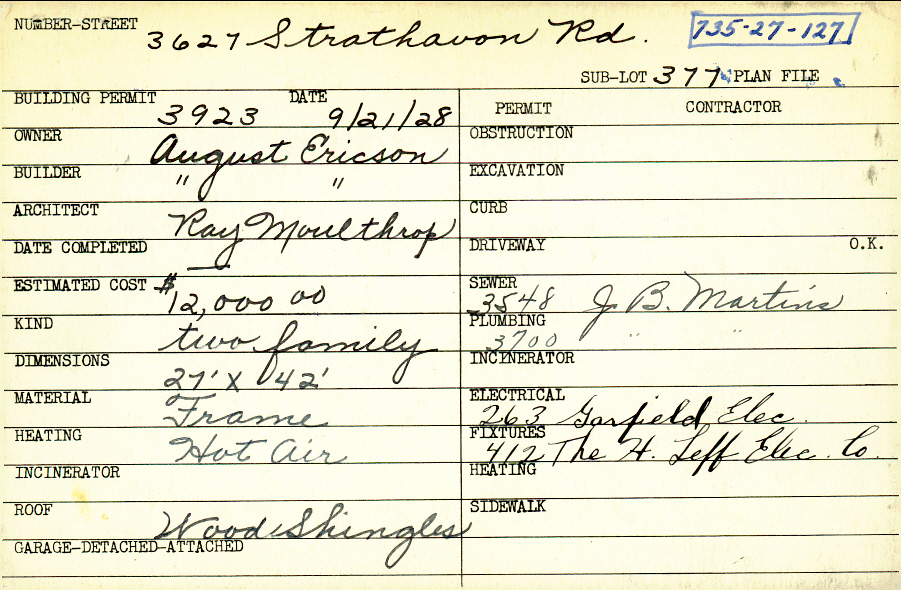 NUMBER-STREET 3627 Strathavon Rd. 735-27-127
SUB-LOT 377 PLAN FILE
BUILDING PERMIT 3923 DATE 9/21/28
OWNER August Ericson
BUILDER " "
ARCHITECT Ray Moulthrop
DATE COMPLETED —
ESTIMATED COST $12,000 00
KIND two family
DIMENSIONS 27' X 42'
MATERIAL Frame
HEATING Hot Air
INCINERATOR
ROOF Wood Shingles
GARAGE-DETACHED-ATTACHED
PERMIT CONTRACTOR
OBSTRUCTION
EXCAVATION
CURB
DRIVEWAY O.K.
SEWER 3548 J B. Martins
PLUMBING 3700 " "
INCINERATOR
ELECTRICAL 263 Garfield Elec.
FIXTURES 412 The H. Leff Elec. Co.
HEATING
SIDEWALK